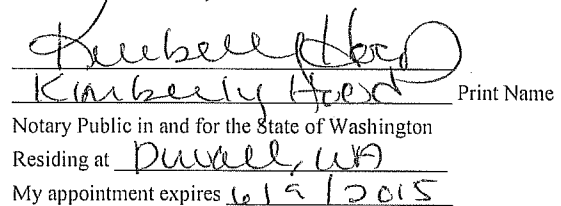 Kimberly
Kimberly Print Name
Notary Public in and for the State of Washington
Residing at Duvall, WA
My appointment expires 6/9/2015